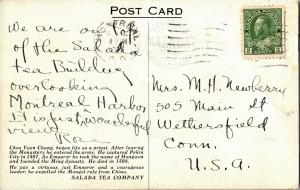 POST CARD
We are on
top
of the Salada
Tea Building
overlooking
Montreal Harbor
It is just wonderful
view
Mrs. M. H. Newberry
505 Main St
Wethersfield
Conn.
U.S.A.
Chao Yuen Chang, began life as a priest. After leaving
the Monastery he entered the army. He captured Pekin
City in 1367. As Emperor he took the name of Hungwun
and founded the Ming dynasty. He died in 1398.
He was a virtuous, just Emperor and a courageous
leader; he expelled the Mongol rule from China.
SALADA TEA COMPANY